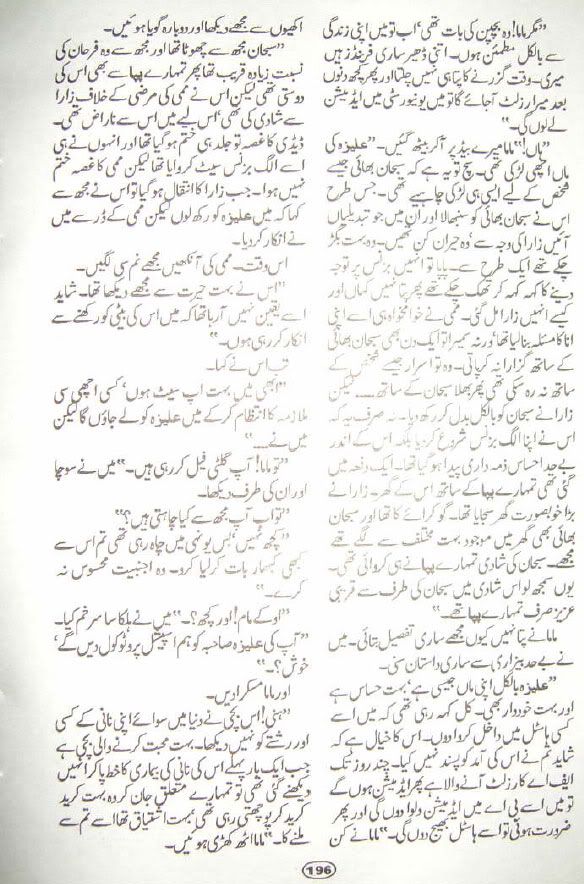 "مگر ماما! وہ بچپن کی بات تھی، اب تو میں اپنی زندگی
سے بالکل مطمئن ہوں۔ اتنی ڈھیر ساری فرینڈز ہیں
میری۔ وقت گزرنے کا پتا ہی نہیں چلتا اور پھر کچھ دنوں
بعد میرا رزلٹ آ جائے گا تو میں یونیورسٹی میں ایڈمیشن
لے لوں گی۔"
"ہاں!" ماما میرے بیڈ پر آ کر بیٹھ گئیں۔ "علیزہ کی
ماں اچھی لڑکی تھی۔ سچ تو یہ ہے کہ سبحان بھائی جیسے
شخص کے لیے ایسی ہی لڑکی چاہیے تھی۔ جس طرح
اس نے سبحان بھائی کو سنبھالا اور ان میں جو تبدیلیاں
آئیں زارا کی وجہ سے، وہ حیران کن تھیں۔ وہ بہت بگڑ
چکے تھے ایک طرح سے۔ پاپا تو انہیں بزنس پر توجہ
دینے کا کہہ کہہ کر تھک چکے تھے پھر پتا نہیں کہاں اور
کیسے انہیں زارا مل گئی۔ ممی نے خوامخواہ ہی اسے اپنی
انا کا مسئلہ بنا لیا تھا، ورنہ سمیرا تو ایک دن بھی سبحان بھائی
کے ساتھ گزارا نہ کر پاتی۔ وہ تو اسرار جیسے شخص کے
ساتھ نہ رہ سکی تھی پھر بھلا سبحان کے ساتھ۔۔۔۔ لیکن
زارا نے سبحان کو بالکل بدل کر رکھ دیا۔ نہ صرف یہ کہ
اس نے اپنا الگ بزنس شروع کر دیا بلکہ اس کے اندر
بے حد احساس ذمہ داری پیدا ہو گیا تھا۔ ایک دفعہ میں
گئی تھی تمہارے پپا کے ساتھ اس کے گھر۔ زارا نے
بڑا خوبصورت گھر سجایا تھا۔ گو کرائے کا تھا اور سبحان
بھائی بھی گھر میں موجود بہت مختلف سے لگے تھے
مجھے۔ سبحان کی شادی تمہارے پپا نے ہی کروائی تھی۔
یوں سمجھ لو اس شادی میں سبحان کی طرف سے قریبی
عزیز صرف تمہارے پپا تھے۔"
ماما نے پتا نہیں کیوں مجھے ساری تفصیل بتائی۔ میں
نے بے حد بیزاری سے ساری داستان سنی۔
"علیزہ بالکل اپنی ماں جیسی ہے، بہت حساس ہے
اور بہت خوددار بھی۔ کل کہہ رہی تھی کہ میں اسے
کسی ہاسٹل میں داخل کروا دوں۔ اس کا خیال ہے کہ
شاید تم نے اس کی آمد کو پسند نہیں کیا۔ چند روز تک
ایف اے کا رزلٹ آنے والا ہے پھر ایڈمیشن ہوں گے
تو میں اسے بی اے میں ایڈمیشن دلوا دوں گی اور پھر
ضرورت ہوئی تو اسے ہاسٹل بھیج دوں گی۔" ماما نے کن
اکھیوں سے مجھے دیکھا اور دوبارہ گویا ہوئیں۔
"سبحان مجھ سے چھوٹا تھا اور مجھ سے وہ فرحان کی
نسبت زیادہ قریب تھا پھر تمہارے پپا سے بھی اس کی
دوستی تھی لیکن اس نے ممی کی مرضی کے خلاف زارا
سے شادی کی تھی، اس لیے میں اس سے ناراض تھی۔
ڈیڈی کا غصہ تو جلد ہی ختم ہو گیا تھا اور انہوں نے ہی
اسے الگ بزنس سیٹ کروایا تھا لیکن ممی کا غصہ ختم
نہیں ہوا۔ جب زارا کا انتقال ہو گیا تو اس نے مجھ سے
کہا کہ میں علیزہ کو رکھ لوں لیکن ممی کے ڈر سے میں
نے انکار کر دیا۔
اس وقت۔ ممی کی آنکھیں مجھے نم سی لگیں۔
"اس نے بہت حیرت سے مجھے دیکھا تھا۔ شاید
اسے یقین نہیں آ رہا تھا کہ میں اس کی بیٹی کو رکھنے سے
انکار کر رہی ہوں۔"
تب اس نے کہا۔
"ابھی میں بہت اپ سیٹ ہوں، کسی اچھی سی
ملازمہ کا انتظام کر کے میں علیزہ کو لے جاؤں گا لیکن
میں نے۔۔۔"
"تو ماما! آپ گلٹی فیل کر رہی ہیں۔" میں نے سوچا
اور ان کی طرف دیکھا۔
"تو اب آپ مجھ سے کیا چاہتی ہیں؟"
"کچھ نہیں، بس یونہی میں چاہ رہی تھی تم اس سے
کبھی کبھار بات کر لیا کرو۔ وہ اجنبیت محسوس نہ
کرے۔"
"اوکے مام! اور کچھ؟۔" میں نے ہلکا سا سر خم کیا۔
"آپ کی علیزہ صاحبہ کو ہم اسپیشل پروٹوکول دیں گے،
خوش؟۔"
اور ماما مسکرا دیں۔
"ہنی! اس بچی نے دنیا میں سوائے اپنی نانی کے کسی
اور رشتے کو نہیں دیکھا۔ بہت محبت کرنے والی بچی ہے
جب ایک بار پہلے اس کی نانی کی بیماری کا خط پا کر انہیں
دیکھنے گئی تھی تو تمہارے متعلق جان کر وہ بہت کرید
کرید کر پوچھتی رہی تھی، بہت اشتیاق تھا اسے تم سے
ملنے کا۔" ماما اٹھ کھڑی ہوئیں۔
196